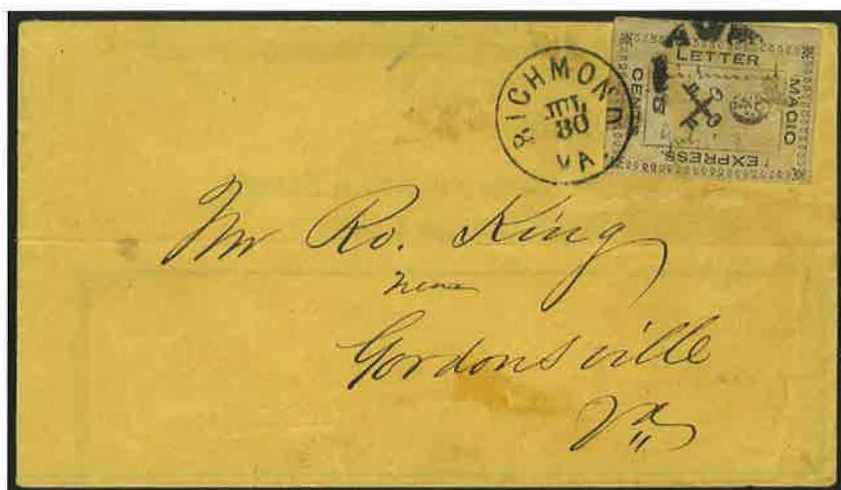 RICHMOND
JUL
30
VA
LETTER
MAGIC
EXPRESS
CENTS
Mr Ro. King
near
Gordonsville
Va